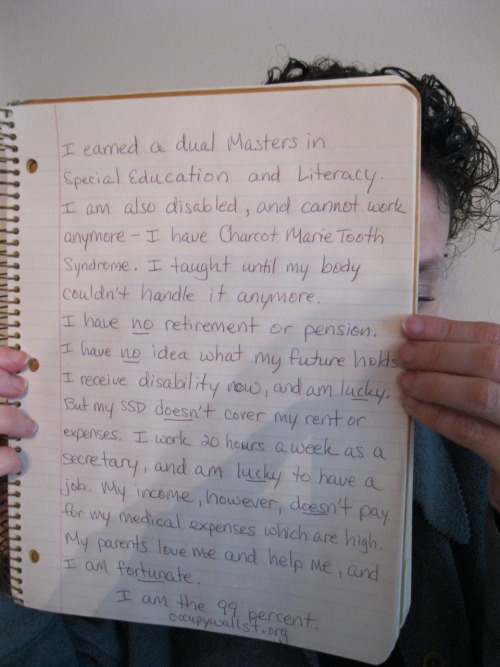 I earned a dual Masters in
Special Education and Literacy.
I am also disabled, and cannot work
anymore - I have Charcot Marie Tooth
Syndrome. I taught until my body
couldn't handle it anymore.
I have no retirement or pension.
I have no idea what my future holds
I receive disability now, and am lucky.
But my SSD doesn't cover my rent or
expenses. I work 20 hours a week as a
secretary, and am lucky to have a
job. My income, however, doesn't pay
for my medical expenses which are high.
My parents love me and help me, and
I am fortunate.
I am the 99 percent.
occupywallst.org